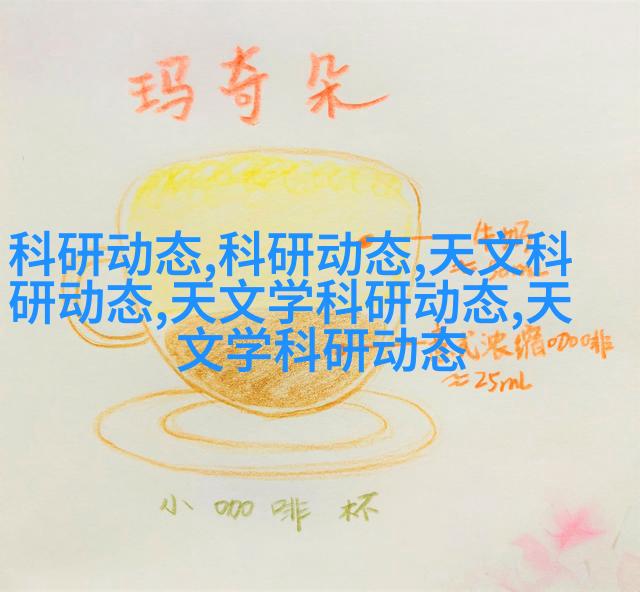 玛奇朵
科研动态,科研动态,天文科
研动态,天文学科研动态,天
文学科研动态
浓缩咖啡
≈25mL
小咖啡杯